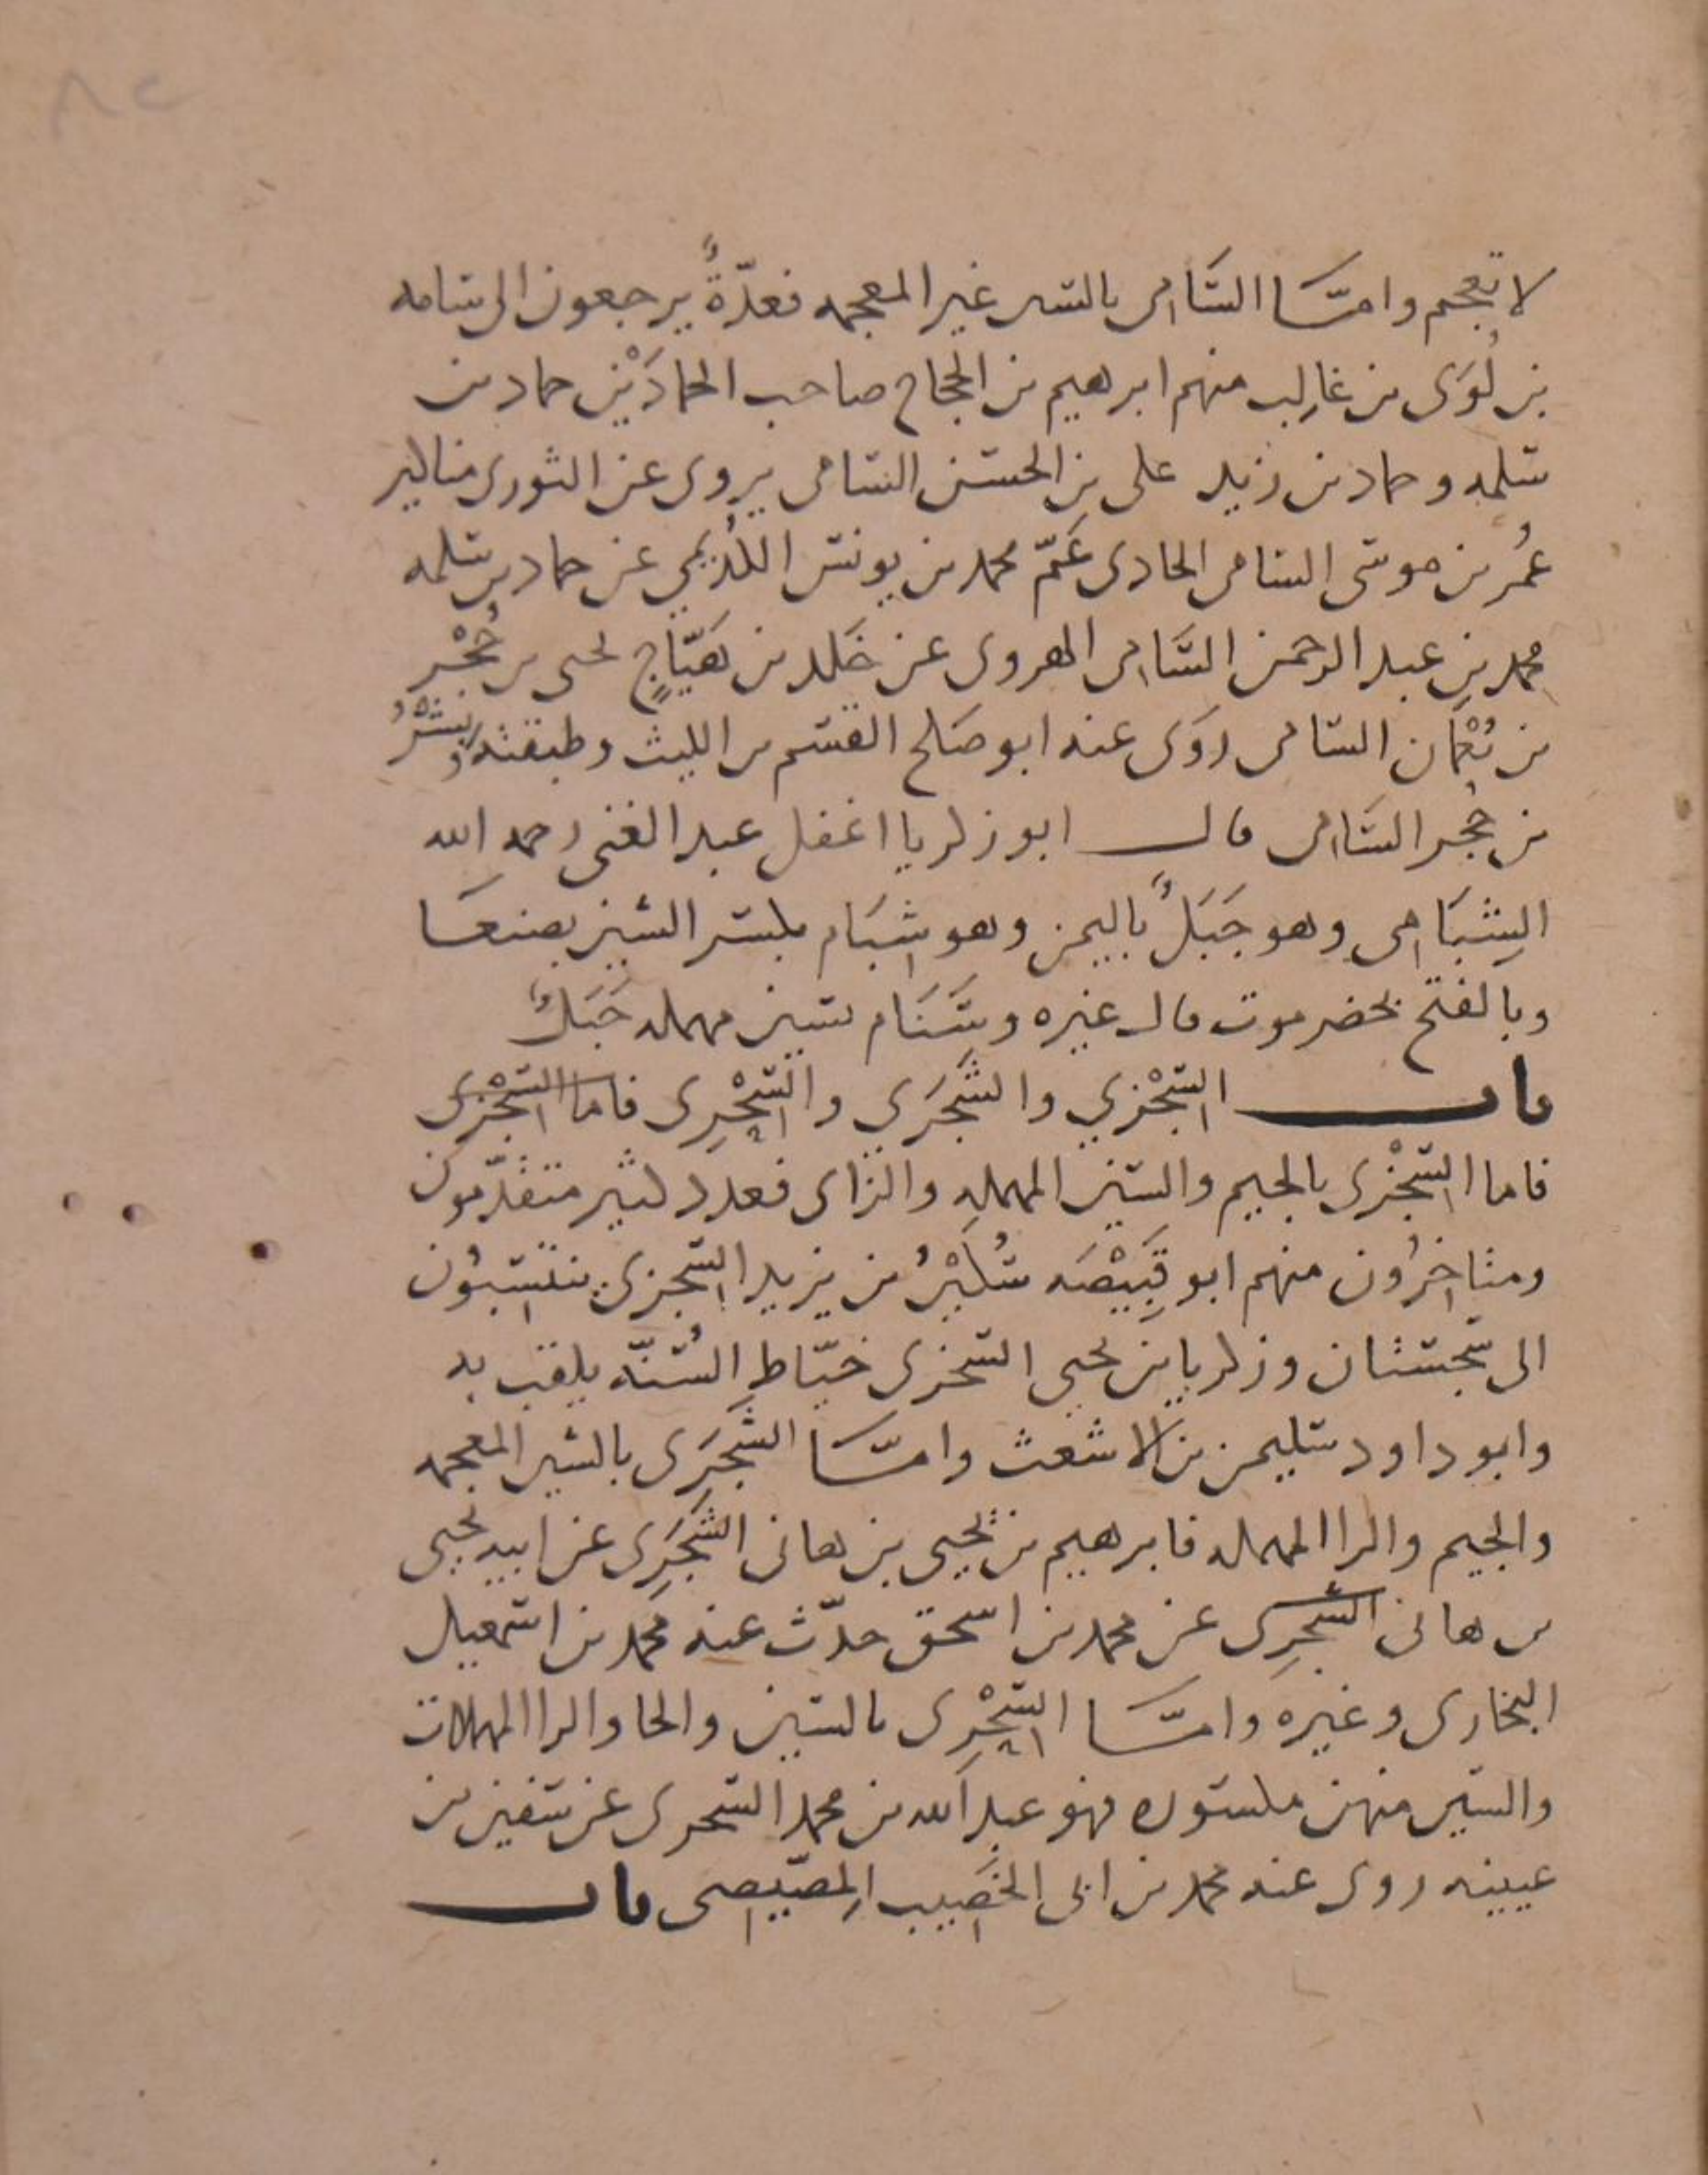 لا تعجم وامّا السَّامى بالسين غير المعجمه فعدّةٌ يرجعون الى سامه
بن لُوَى بن غالب منهم ابرهيم بن الحجاج صاحب الحمادَيْن حماد بن
سلمه وحماد بن زيد على بن الحسن السامى يروى عن الثورى مناكير
عُمر بن موسى السامى الحادى عَمّ محمد بن يونس الكُدَيمي عن حماد بن سلمه
محمد بن عبد الرحمن السَّامى الهروى عن خَلد بن هَيّاجٍ يحيى بن حُجْر
بن نُعْمَان السامى روَى عنه ابو صَلح القسم بن الليث وطبقته وبِشْرُ
بن حُجر السَّامى قال ابو زكريا اغفل عبد الغنى رحمه الله
الشِبَامى وهو جَبَلٌ باليمن وهو شِبَام بكسر الشين بصنعَا
وبالفتح بحضرموت قال غيره وسَنَام بسين مهمله جَبَلٌ
باب السِّجْزي والشَّجَرَي والسِّحْرِى فاما السِّجْزى
فاما السِّجْزى بالجيم والسين المهمله والزاى فعدد كثير متقدّمون
ومتاخرُون منهم ابو قَبِيْصَه سُكَيْرُ بن يزيد السِّجزى ينتسِبُون
الى سِجستان وزكريا بن يحيى السجزى خيّاط السُّنّه يلقب به
وابو داود سليمن بن الاشعث وامّا الشَّجَرَى بالشين المعجمه
والجيم والرا المهمله فابرهيم بن يحيى بن هانى الشَّجَرِى عن ابيه يحيى
بن هانى الشَّجَرِى عن محمد بن اسحق حدّث عنه محمد بن اسمعيل
البخارى وغيره وامّا السِّحْرِى بالسين والحا والرا المهملات
والسين منهن مكسوره فهو عبد الله بن محمد السحرى عن سفين بن
عيينه روى عنه محمد بن ابى الخَصِيب المِصّيصى باب